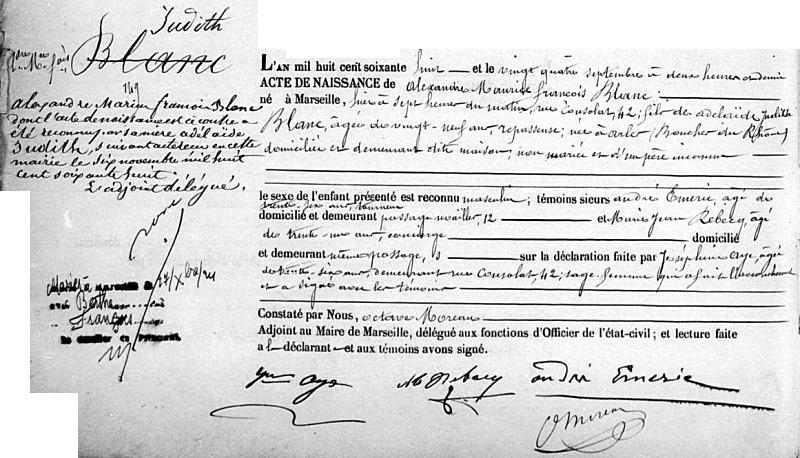 Judith
Blanc
769
Alexandre Marius françois Blanc
dont l'acte de naissance est ci contre a
été reconnu par sa mère adélaïde
Judith, suivant acte reçu en cette
mairie le six novembre mil huit
cent soixante huit.
L'adjoint délégué.
Marié à Marseille le
avec Berthe
François
L'AN mil huit cent soixante huit et le vingt quatre septembre à deux heures et demie
ACTE DE NAISSANCE de Alexandre Maurice François Blanc
né à Marseille, hier à sept heures du matin, rue Consolat, 42; fils de adelaïde Judith
Blanc, âgée de vingt-neuf ans, repasseuse; née à arles (Bouches du Rhône)
domiciliée et demeurant dite maison, non mariée et d'un père inconnu
le sexe de l'enfant présenté est reconnu masculin; témoins sieurs andré Emeric, agé de
trente-six ans,
domicilié et demeurant passage noailles, 12 et Marie Jean Rebecq, agé
de trente-un ans, concierge domicilié
et demeurant même passage, sur la déclaration faite par Joséphine aye, agée
de trente-six ans, demeurant rue Consolat, 42; sage femme qui a fait l'accouchement
et a signé avec les témoins
Constaté par Nous, octave Moreau
Adjoint au Maire de Marseille, délégué aux fonctions d'Officier de l'état-civil; et lecture faite
a l déclarant et aux témoins avons signé.
aye M Rebecq andré Emeric
O Moreau